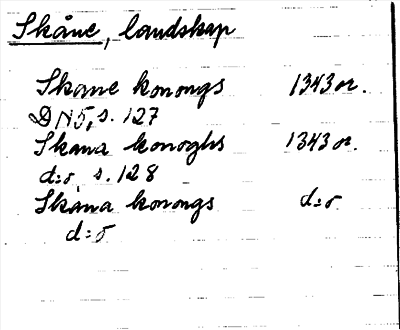 Skåne, landskap
Skane konongs 1343 or.
DN 5, s. 127
Skana konoghs 1343 or.
d:o, s. 128
Skana konongs d:o
d:o